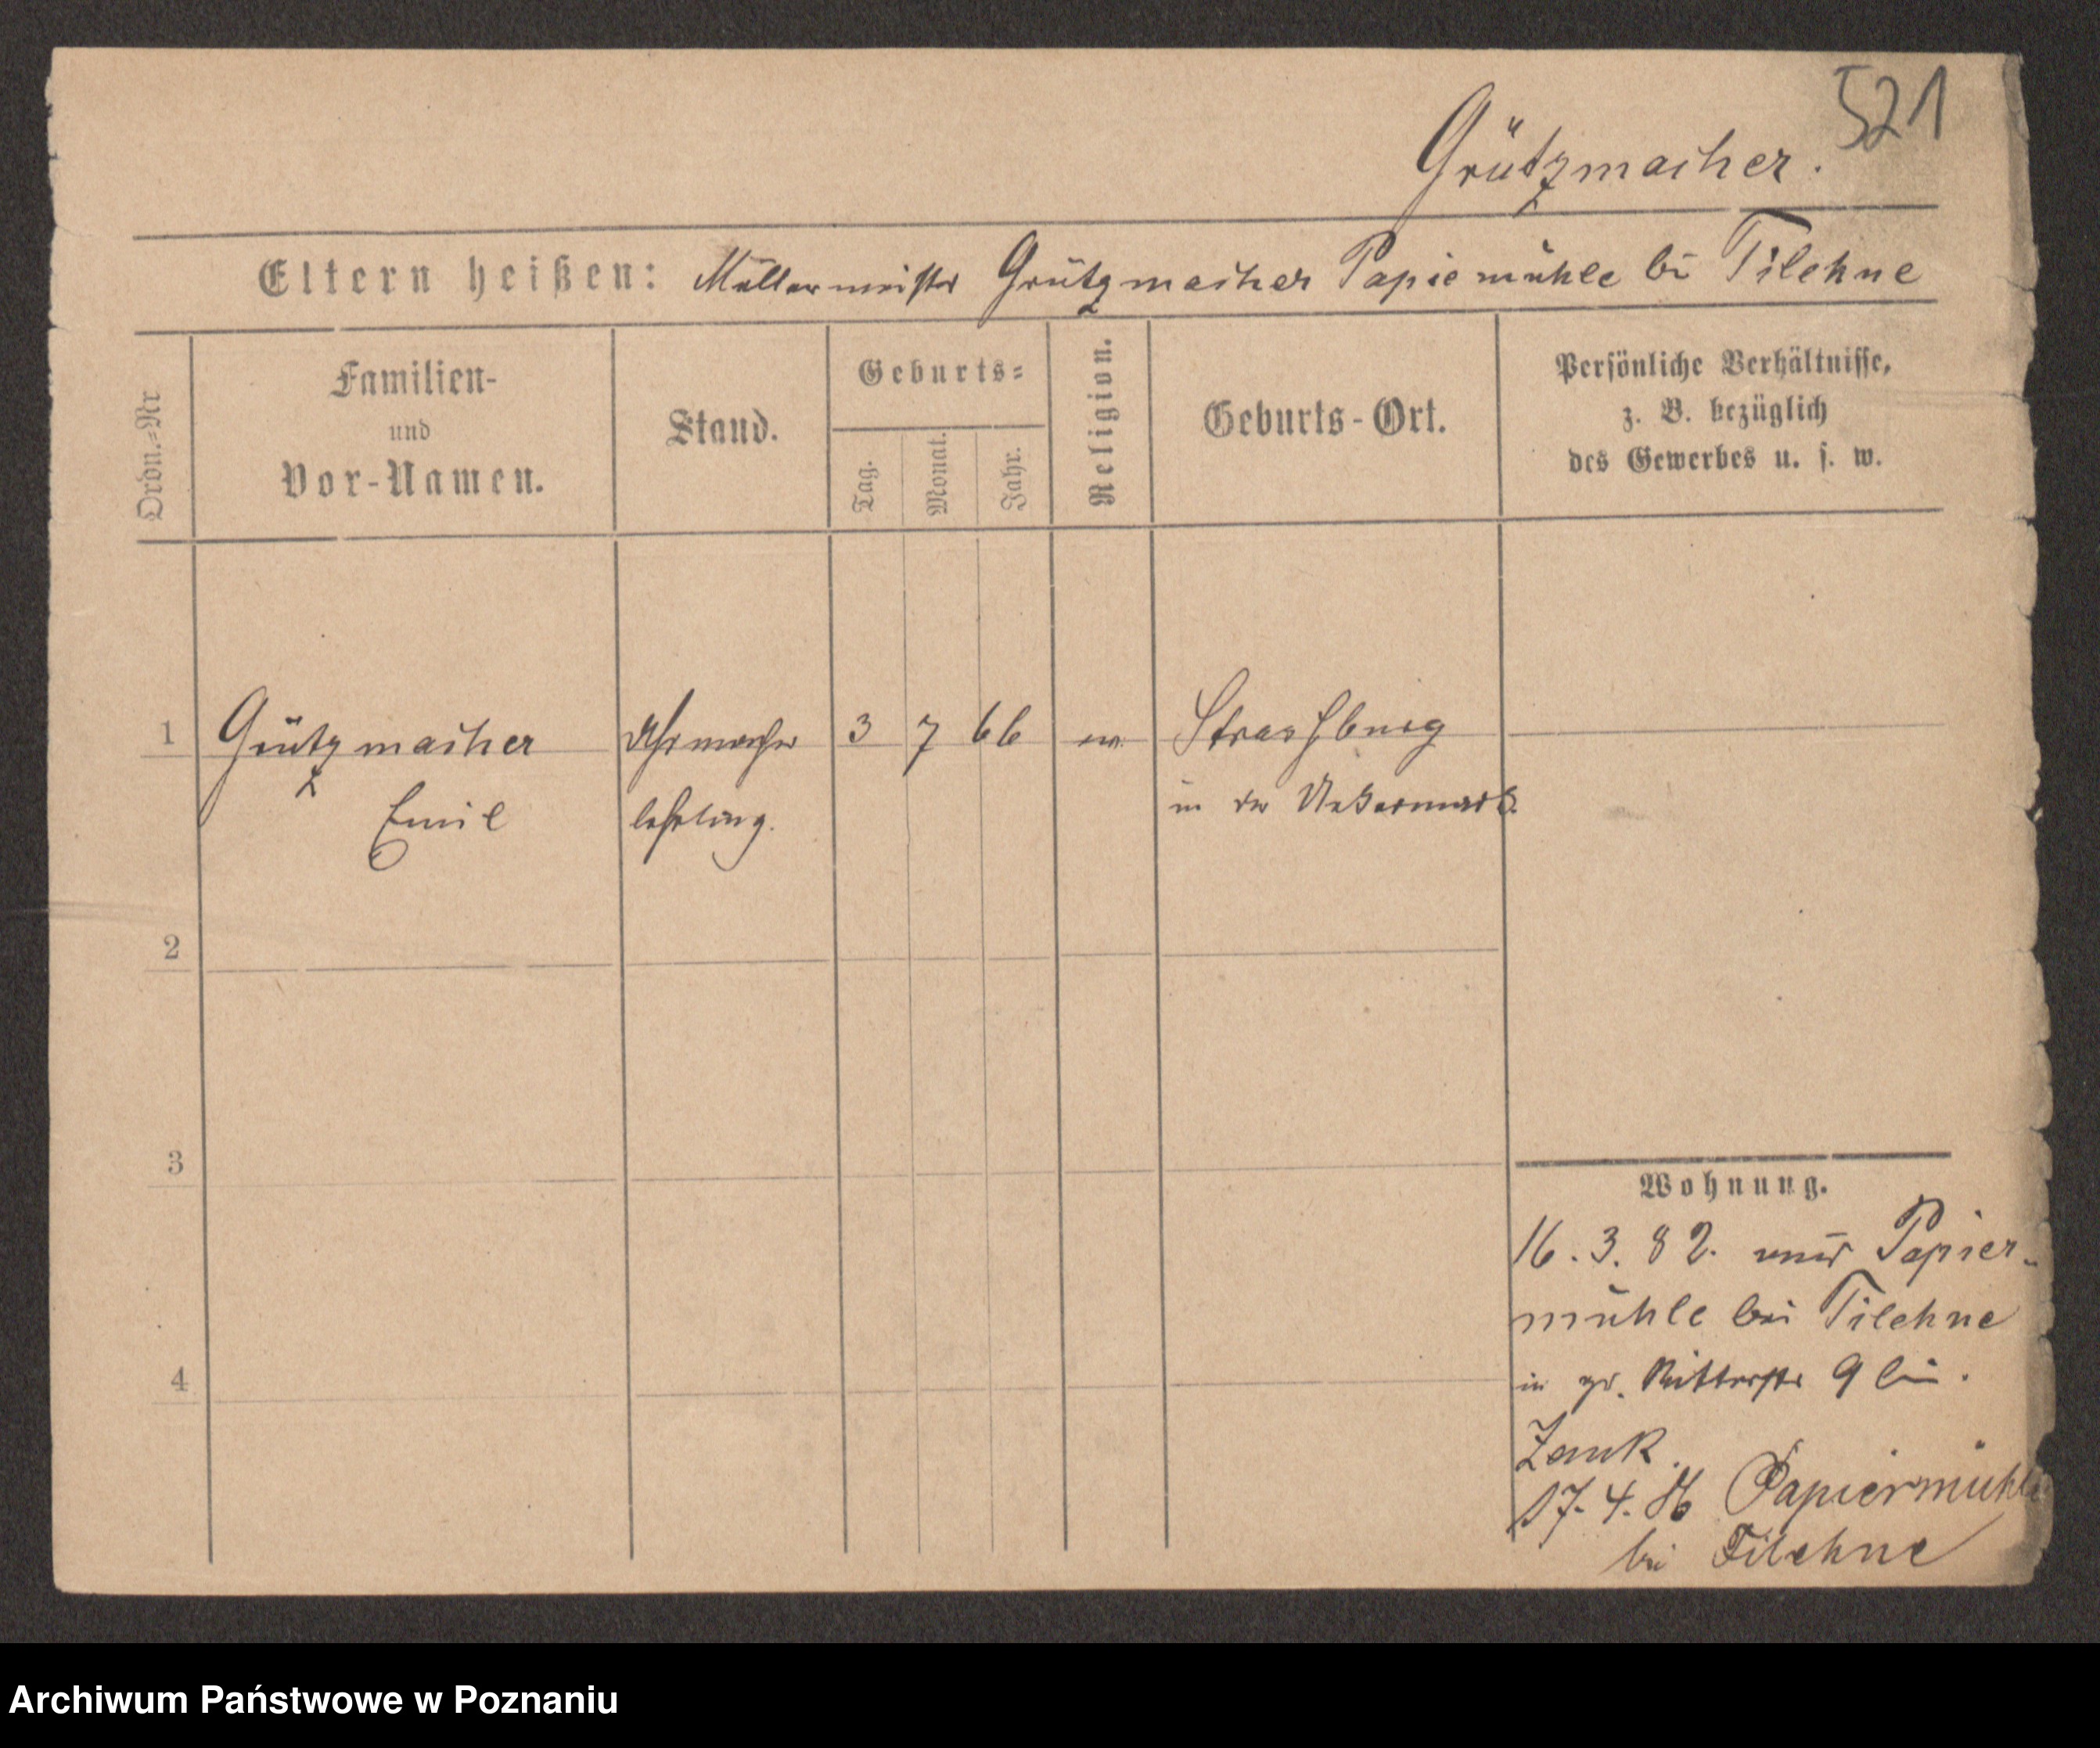 521
Grützmacher.
Eltern heißen: Müllermeister Grützmacher Papiemühle bei Filehne
Ordn.=Nr
Familien-
und
Vor-Namen.
Stand.
Geburts=
Tag.
Monat.
Jahr.
Religion.
Geburts-Ort.
Persönliche Verhältnisse,
z. B. bezüglich
des Gewerbes u. s. w.
1 Grützmacher Uhrmacher 3 7 66 ev. Strassburg
Emil lehrling. in der Uckermark.
2
3
4
Wohnung.
16. 3. 82. Papier-
mühle bei Filehne
in gr. Ritterstr 9 bei.
Zenk.
17. 4. 86 Papiermühle
bei Filehne
Archiwum Państwowe w Poznaniu